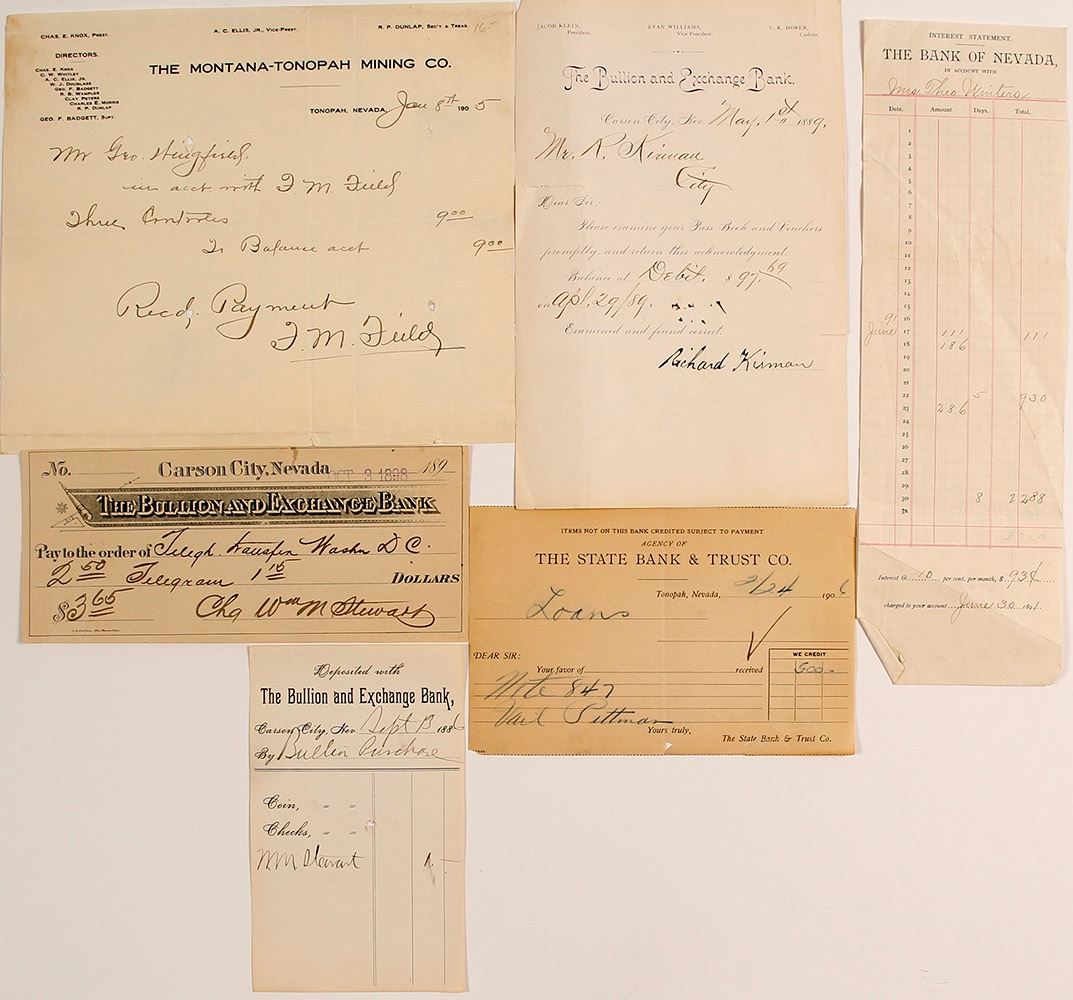 CHAS. E. KNOX, PREST.
A. C. ELLIS, JR., VICE-PREST.
R. P. DUNLAP, SEC'Y & TREAS.
16-
DIRECTORS.
CHAS. E. KNOX
C. W. WHITLEY
A. C. ELLIS, JR.
W. J. DOUGLASS
GEO. F. BADGETT
R. B. WAMPLER
CLAY PETERS
CHARLES E. MORRIS
R. P. DUNLAP
GEO. F. BADGETT, SUPT.
THE MONTANA-TONOPAH MINING CO.
TONOPAH, NEVADA, Jan 8th 1905
Mr Geo. Wingfield.
in acct with F. M. Field
Three 9 00
To Balance acct 9 00
Recd. Payment
F. M. Field
JACOB KLEIN, President.
EVAN WILLIAMS, Vice President.
T. R. HOFER, Cashier.
The Bullion and Exchange Bank.
Carson City, Nev. May, 1st 1889.
Mr. R. Kirman
City
Dear Sir:
Please examine your Pass Book and Vouchers
promptly, and return this acknowledgment.
Balance at Debit, $ 97.69
on Apl. 29/89.
Examined and found correct.
Richard Kirman
INTEREST STATEMENT.
THE BANK OF NEVADA,
IN ACCOUNT WITH
Mrs. Theo Winters
Date. Amount. Days. Total.
1
2
3
4
5
6
7
8
9
10
11
12
13
14
15
91 16
June 17 111 111
18 186
19
20
21
22 5 930
23 286
24
25
26
27
28
29
30 8 2288
31
Interest @ 10 per cent. per month, $ .934
charged to your account June 30 1891.
No. Carson City, Nevada OCT 3 1898 189
THE BULLION AND EXCHANGE BANK
Pay to the order of Telegh. transfer Washn D C.
2 50 Telegram 1 15 DOLLARS
$3 65 Chg Wm M Stewart
ITEMS NOT ON THIS BANK CREDITED SUBJECT TO PAYMENT
AGENCY OF
THE STATE BANK & TRUST CO.
Tonopah, Nevada, 2/24 1906
Loans
DEAR SIR:
WE CREDIT
Your favor of received 500-
Note 847
Vail Pittman
Yours truly,
The State Bank & Trust Co.
Deposited with
The Bullion and Exchange Bank,
Carson City, Nev. Sept 13 1886
By Bullion Purchase
Coin, " "
Checks, " "
Wm Stewart